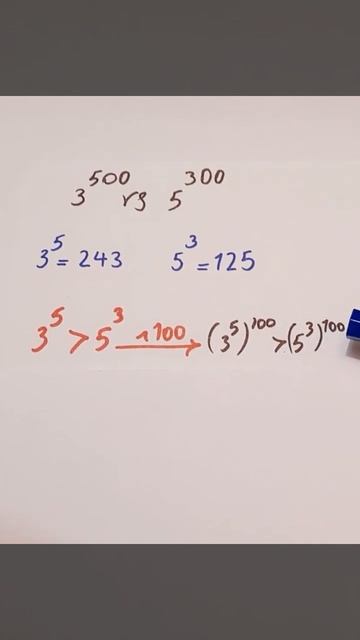 3^500 vs 5^300
3^5 = 243 5^3 = 125
3^5 > 5^3 ^100 → (3^5)^100 > (5^3)^100